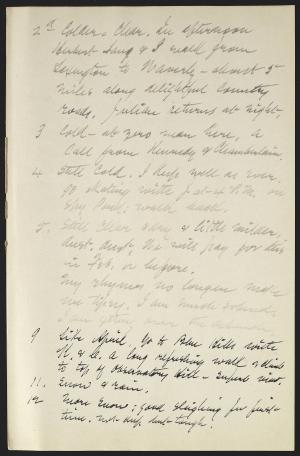 2d Colder. Clear. In afternoon
Herbert Lang & I walk from
Lexington to Waverly - almost 5
miles along delightful country
roads. Julian returns at night.
3 Cold - at zero near here, a
call from Kennedy & Chamberlain.
4 Still cold. I keep well as ever.
go skating with J. at 4 P.M. on
Spy Pond: walk back.
5. Still clear days & little milder.
dust, dust, We will pay for this
in Feb. or before.
My rhymes no longer
me
9 Like April, go to Blue Hills with
H. & C. a long refreshing walk & climb
to top of Observatory Hill - superb view.
11. Snow & rain.
12 More snow; good sleighing for first
time. Not deep but tough.